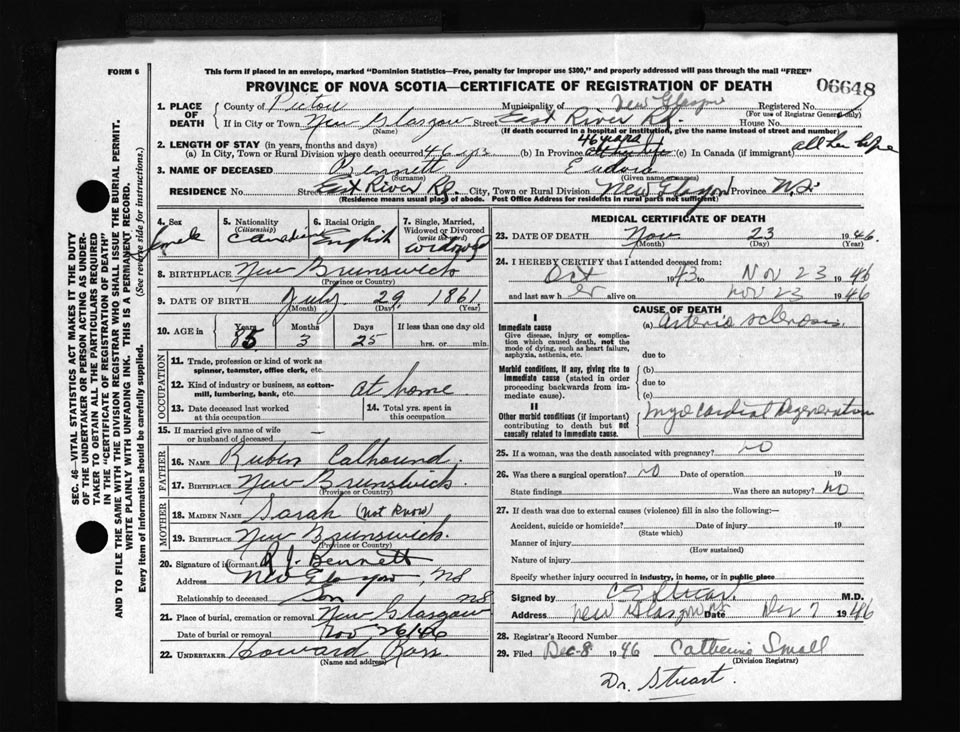 FORM 6
This form if placed in an envelope, marked "Dominion Statistics—Free, penalty for improper use $300," and properly addressed will pass through the mail "FREE"
PROVINCE OF NOVA SCOTIA—CERTIFICATE OF REGISTRATION OF DEATH 06648
1. PLACE OF DEATH
County of Pictou Municipality of New Glasgow Registered No.
(For use of Registrar General only)
If in City or Town New Glasgow Street East River Rd. House No.
(Name) (If death occurred in a hospital or institution, give the name instead of street and number)
2. LENGTH OF STAY (in years, months and days) 46 years
(a) In City, Town or Rural Division where death occurred 46 yrs (b) In Province all her life (c) In Canada (if immigrant) all her life
3. NAME OF DECEASED Bennett Eudora
(Surname) (Given name or names)
RESIDENCE No. Street East River Rd. City, Town or Rural Division New Glasgow Province N.S.
(Residence means usual place of abode. Post Office Address for residents in rural parts not sufficient)
4. Sex
Female
5. Nationality
(Citizenship)
Canadian
6. Racial Origin
English
7. Single, Married, Widowed or Divorced
(write the word)
widowed
8. BIRTHPLACE New Brunswick
(Province or Country)
9. DATE OF BIRTH July 29 1861
(Month) (Day) (Year)
10. AGE in Years Months Days If less than one day old
85 3 25 hrs. or min.
OCCUPATION
11. Trade, profession or kind of work as spinner, teamster, office clerk, etc.
12. Kind of industry or business, as cotton-mill, lumbering, bank, etc. at home
13. Date deceased last worked at this occupation
14. Total yrs. spent in this occupation
15. If married give name of wife or husband of deceased —
FATHER
16. NAME Ruben Calhound.
17. BIRTHPLACE New Brunswick.
(Province or Country)
MOTHER
18. MAIDEN NAME Sarah (not know)
19. BIRTHPLACE New Brunswick.
(Province or Country)
20. Signature of informant R J. Bennett
Address New Glasgow, NS
Relationship to deceased Son
21. Place of burial, cremation or removal New Glasgow NS
Date of burial or removal Nov 26/46
22. UNDERTAKER Howard Ross.
(Name and address)
MEDICAL CERTIFICATE OF DEATH
23. DATE OF DEATH Nov. 23 1946.
(Month) (Day) (Year)
24. I HEREBY CERTIFY that I attended deceased from:
Oct 1943 to Nov 23 1946
and last saw her alive on Nov 23 1946
CAUSE OF DEATH
I
Immediate cause
Give disease, injury or complication which caused death, not the mode of dying, such as heart failure, asphyxia, asthenia, etc.
(a) Arterio sclerosis.
due to
Morbid conditions, if any, giving rise to immediate cause (stated in order proceeding backwards from immediate cause).
(b)
due to
(c)
II
Other morbid conditions (if important) contributing to death but not causally related to immediate cause.
Myocardial Degeneration
25. If a woman, was the death associated with pregnancy? NO
26. Was there a surgical operation? NO Date of operation 19
State findings Was there an autopsy? NO
27. If death was due to external causes (violence) fill in also the following:—
Accident, suicide or homicide? Date of injury 19
(State which)
Manner of injury
(How sustained)
Nature of injury
Specify whether injury occurred in industry, in home, or in public place
Signed by M.D.
Address New Glasgow NS Date Dec 7 1946
28. Registrar's Record Number
29. Filed Dec-8 1946 Catherine Small
(Division Registrar)
Dr. Stuart.
SEC. 16—VITAL STATISTICS ACT MAKES IT THE DUTY
OF THE UNDERTAKER OR PERSON ACTING AS UNDER-
TAKER TO OBTAIN ALL THE PARTICULARS REQUIRED
IN THE "CERTIFICATE OF REGISTRATION OF DEATH"
AND TO FILE THE SAME WITH THE DIVISION REGISTRAR WHO SHALL ISSUE THE BURIAL PERMIT.
WRITE PLAINLY WITH UNFADING INK. THIS IS A PERMANENT RECORD.
Every item of information should be carefully supplied. (See reverse side for instructions.)